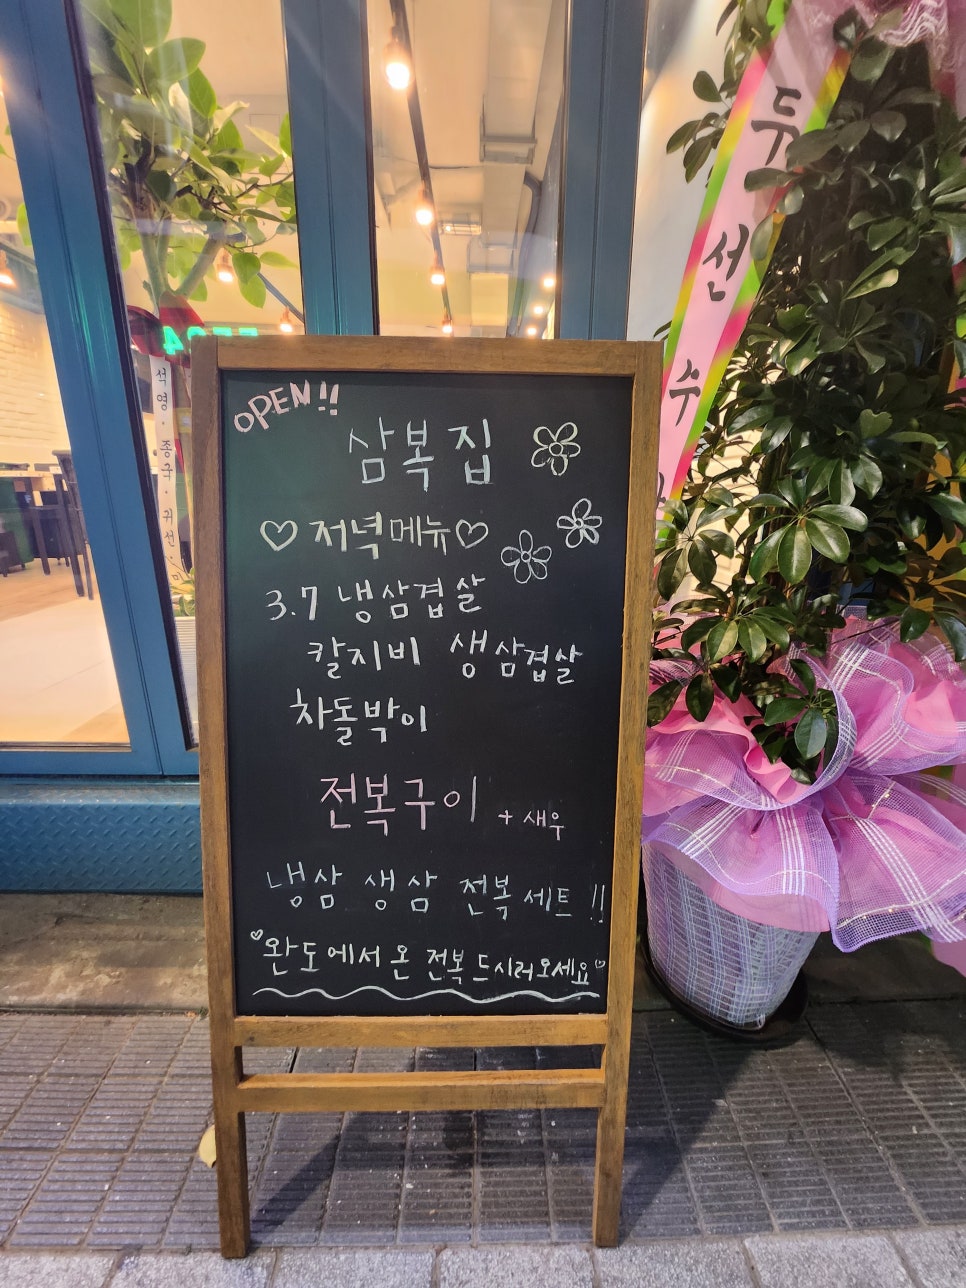 OPEN!!
삼복집
저녁메뉴
3.7 냉삼겹살
칼지비 생삼겹살
차돌박이
전복구이 + 새우
냉삼 생삼 전복세트!!
완도에서 온 전복 드시러오세요
두선수
석영·종구·귀선·